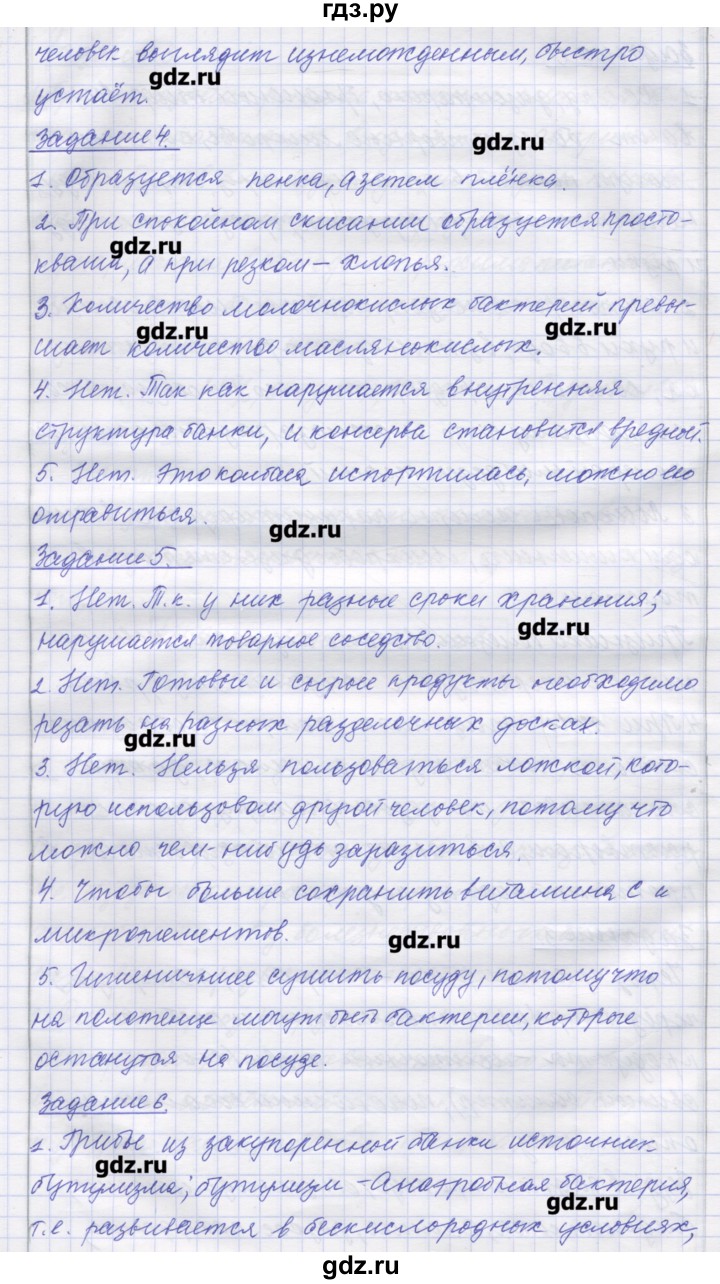 гдз.ру
человек выглядит изнеможденным, быстро
gdz.ru
устаёт.
Задание 4.
gdz.ru
1. Образуется пенка, а зетем плёнка.
2. При спокойном скисании образуется просто-
gdz.ru
кваша, а при резком – хлопья.
3. Количество молочнокислых бактерий превы-
gdz.ru gdz.ru
шает количество маслянокислых.
4. Нет. Так как нарушается внутренняя
структура банки, и консерва становится вредной.
5. Нет. Это колбаса испортилась, можно ею
отравиться.
gdz.ru
Задание 5.
1. Нет. Т.к. у них разные сроки хранения;
gdz.ru
нарушается товарное соседство.
2. Нет. Готовые и сырые продукты необходимо
резать на разных разделочных досках.
gdz.ru
3. Нет. Нельзя пользоваться ложкой, кото-
рую использовал другой человек, потому что
можно чем-нибудь заразиться.
4. Чтобы больше сохранить витамина С и
микроэлементов.
gdz.ru
5. Гигиеничнее сушить посуду, потому что
на полотенце могут быть бактерии, которые
останутся на посуде.
Задание 6.
1. Грибы из закупоренной банки источник
gdz.ru
бутулизма; бутулизм – Анаэробная бактерия,
gdz.ru
т.е. развивается в бескислородных условиях,
gdz.ru